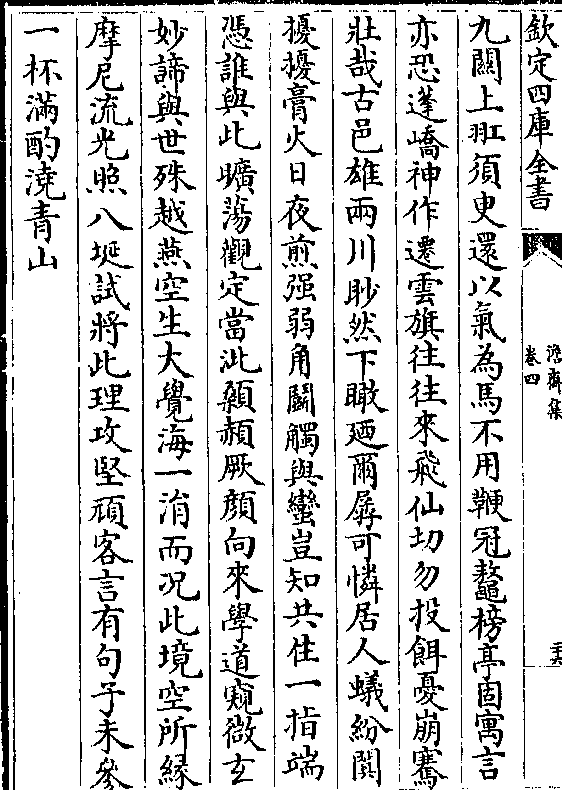 欽定四庫全書
澹齋集
卷四
九關上羾須臾還以氣為馬不用鞭冠鼇榜亭固寓言
亦恐蓬嶠神作遷雲旗往往來飛仙切勿投餌憂崩騫
壯哉古邑雄兩川眇然下瞰廼爾孱可憐居人蟻紛闐
擾擾膏火日夜煎强弱角鬭觸與蠻豈知共住一指端
憑誰與此曠蕩觀定當泚顙赧厥顔向來學道窺微玄
妙諦與世殊越燕空生大覺海一涓而况此境空所緣
摩尼流光照八埏試將此理攻堅頑客言有句子未參
一杯滿酌澆青山